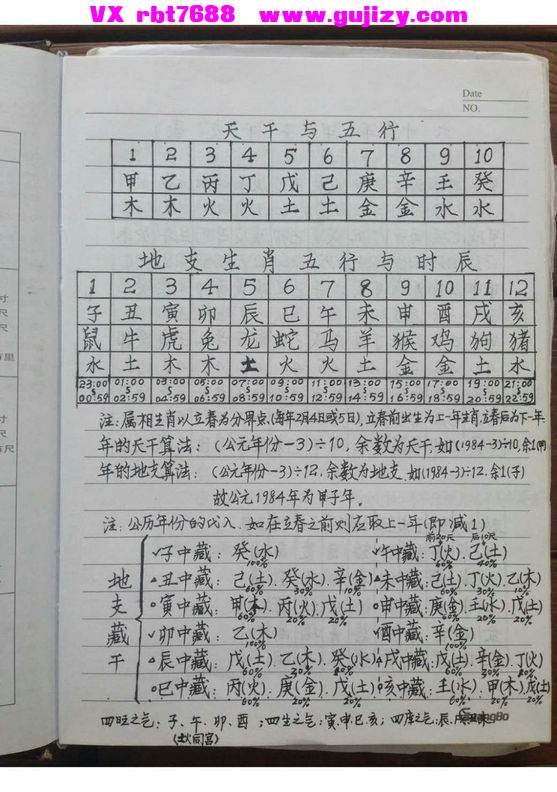 VX rbt7688 www.gujizy.com
Date
NO.
天干与五行
1 2 3 4 5 6 7 8 9 10
甲 乙 丙 丁 戊 己 庚 辛 壬 癸
木 木 火 火 土 土 金 金 水 水
地支生肖五行与时辰
1 2 3 4 5 6 7 8 9 10 11 12
子 丑 寅 卯 辰 巳 午 未 申 酉 戌 亥
鼠 牛 虎 兔 龙 蛇 马 羊 猴 鸡 狗 猪
水 土 木 木 土 火 火 土 金 金 土 水
23:00 01:00 03:00 05:00 07:00 09:00 11:00 13:00 15:00 17:00 19:00 21:00
00:59 02:59 04:59 06:59 08:59 10:59 12:59 14:59 16:59 18:59 20:59 22:59
注:属相生肖以立春为分界点(每年2月4日或5日),立春前出生为上一年生肖,立春后为下一年.
年的天干算法:(公元年份-3)÷10,余数为天干,如(1984-3)÷10,余1(甲)
年的地支算法:(公元年份-3)÷12,余数为地支,如(1984-3)÷12,余1(子)
故公元1984年为甲子年。
注:公历年份的代入,如在立春之前则应取上一年(即减1)
前20天 后10天
✓子中藏:癸(水) ✓午中藏:丁(火)、己(土)
100% 60% 40%
△丑中藏:己(土)、癸(水)、辛(金) △未中藏:己(土)、丁(火)、乙(木)
60% 30% 10% 60% 30% 10%
○寅中藏:甲(木)、丙(火)、戊(土) ○申中藏:庚(金)、壬(水)、戊(土)
60% 20% 20% 60% 20% 20%
✓卯中藏:乙(木) ✓酉中藏:辛(金)
100% 100%
△辰中藏:戊(土)、乙(木)、癸(水) △戌中藏:戊(土)、辛(金)、丁(火)
○巳中藏:丙(火)、庚(金)、戊(土) ○亥中藏:壬(水)、甲(木)、戊(土)
60% 20% 20% 60% 20% 20%
地支藏干
四旺之气:子、午、卯、酉;四生之气:寅、申、巳、亥;四库之气:辰、戌、丑、未
(土火同宫)